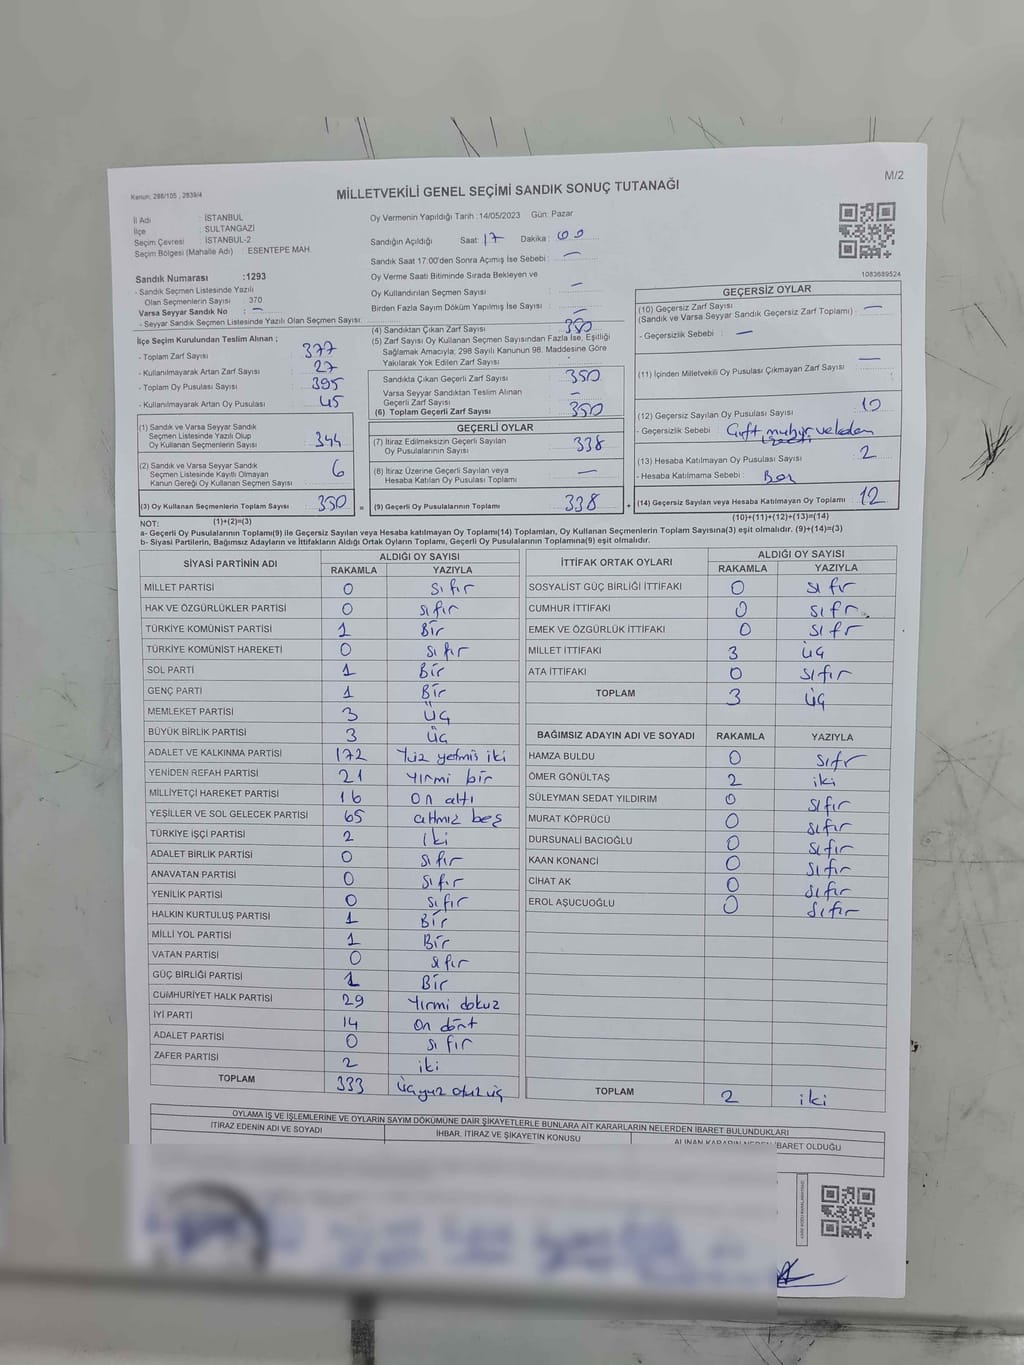 Kanun: 298/105 , 2839/4
M/2
MİLLETVEKİLİ GENEL SEÇİMİ SANDIK SONUÇ TUTANAĞI
İl Adı : İSTANBUL
İlçe : SULTANGAZİ
Seçim Çevresi : İSTANBUL-2
Seçim Bölgesi (Mahalle Adı) : ESENTEPE MAH.
Sandık Numarası :1293
- Sandık Seçmen Listesinde Yazılı
Olan Seçmenlerin Sayısı : 370
Varsa Seyyar Sandık No : —
- Seyyar Sandık Seçmen Listesinde Yazılı Olan Seçmen Sayısı:
İlçe Seçim Kurulundan Teslim Alınan ;
- Toplam Zarf Sayısı : 377
- Kullanılmayarak Artan Zarf Sayısı : 27
- Toplam Oy Pusulası Sayısı : 395
- Kullanılmayarak Artan Oy Pusulası : 45
(1) Sandık ve Varsa Seyyar Sandık
Seçmen Listesinde Yazılı Olup
Oy Kullanan Seçmenlerin Sayısı : 344
(2) Sandık ve Varsa Seyyar Sandık
Seçmen Listesinde Kayıtlı Olmayan
Kanun Gereği Oy Kullanan Seçmen Sayısı : 6
(3) Oy Kullanan Seçmenlerin Toplam Sayısı : 350
(1)+(2)=(3)
Oy Vermenin Yapıldığı Tarih :14/05/2023 Gün: Pazar
Sandığın Açıldığı Saat: 17 Dakika: 00
Sandık Saat 17:00'den Sonra Açımış İse Sebebi : —
Oy Verme Saati Bitiminde Sırada Bekleyen ve
Oy Kullandırılan Seçmen Sayısı : —
Birden Fazla Sayım Döküm Yapılmış İse Sayısı : —
(4) Sandıktan Çıkan Zarf Sayısı : 350
(5) Zarf Sayısı Oy Kullanan Seçmen Sayısından Fazla İse, Eşitliği
Sağlamak Amacıyla; 298 Sayılı Kanunun 98. Maddesine Göre
Yakılarak Yok Edilen Zarf Sayısı :
Sandıkta Çıkan Geçerli Zarf Sayısı : 350
Varsa Seyyar Sandıktan Teslim Alınan
Geçerli Zarf Sayısı : —
(6) Toplam Geçerli Zarf Sayısı : 350
GEÇERLİ OYLAR
(7) İtiraz Edilmeksizin Geçerli Sayılan
Oy Pusulalarının Sayısı : 338
(8) İtiraz Üzerine Geçerli Sayılan veya
Hesaba Katılan Oy Pusulası Toplamı : —
(9) Geçerli Oy Pusulalarının Toplamı : 338
1083689524
GEÇERSİZ OYLAR
(10) Geçersiz Zarf Sayısı
(Sandık ve Varsa Seyyar Sandık Geçersiz Zarf Toplamı) : —
- Geçersizlik Sebebi : —
(11) İçinden Milletvekili Oy Pusulası Çıkmayan Zarf Sayısı : —
(12) Geçersiz Sayılan Oy Pusulası Sayısı : 10
- Geçersizlik Sebebi : Çift mühür
(13) Hesaba Katılmayan Oy Pusulası Sayısı : 2
- Hesaba Katılmama Sebebi : Boş
(14) Geçersiz Sayılan veya Hesaba Katılmayan Oy Toplamı : 12
(10)+(11)+(12)+(13)=(14)
NOT:
a- Geçerli Oy Pusulalarının Toplamı(9) ile Geçersiz Sayılan veya Hesaba Katılmayan Oy Toplamı(14) Toplamları, Oy Kullanan Seçmenlerin Toplam Sayısına(3) eşit olmalıdır. (9)+(14)=(3)
b- Siyasi Partilerin, Bağımsız Adayların ve İttifakların Aldığı Ortak Oyların Toplamı, Geçerli Oy Pusulalarının Toplamına(9) eşit olmalıdır.
SİYASİ PARTİNİN ADI ALDIĞI OY SAYISI
RAKAMLA YAZIYLA
MİLLET PARTİSİ 0 sıfır
HAK VE ÖZGÜRLÜKLER PARTİSİ 0 sıfır
TÜRKİYE KOMÜNİST PARTİSİ 1 Bir
TÜRKİYE KOMÜNİST HAREKETİ 0 sıfır
SOL PARTİ 1 Bir
GENÇ PARTİ 1 Bir
MEMLEKET PARTİSİ 3 üç
BÜYÜK BİRLİK PARTİSİ 3 üç
ADALET VE KALKINMA PARTİSİ 172 Yüz yetmiş iki
YENİDEN REFAH PARTİSİ 21 Yirmi bir
MİLLİYETÇİ HAREKET PARTİSİ 16 On altı
YEŞİLLER VE SOL GELECEK PARTİSİ 65 atmız beş
TÜRKİYE İŞÇİ PARTİSİ 2 iki
ADALET BİRLİK PARTİSİ 0 sıfır
ANAVATAN PARTİSİ 0 sıfır
YENİLİK PARTİSİ 0 sıfır
HALKIN KURTULUŞ PARTİSİ 1 Bir
MİLLİ YOL PARTİSİ 1 Bir
VATAN PARTİSİ 0 sıfır
GÜÇ BİRLİĞİ PARTİSİ 1 Bir
CUMHURİYET HALK PARTİSİ 29 Yirmi dokuz
İYİ PARTİ 14 On dört
ADALET PARTİSİ 0 sıfır
ZAFER PARTİSİ 2 iki
TOPLAM 333 üçyüz otuz üç
İTTİFAK ORTAK OYLARI ALDIĞI OY SAYISI
RAKAMLA YAZIYLA
SOSYALİST GÜÇ BİRLİĞİ İTTİFAKI 0 sıfır
CUMHUR İTTİFAKI 0 sıfır
EMEK VE ÖZGÜRLÜK İTTİFAKI 0 sıfır
MİLLET İTTİFAKI 3 üç
ATA İTTİFAKI 0 sıfır
TOPLAM 3 üç
BAĞIMSIZ ADAYIN ADI VE SOYADI RAKAMLA YAZIYLA
HAMZA BULDU 0 sıfır
ÖMER GÖNÜLTAŞ 2 iki
SÜLEYMAN SEDAT YILDIRIM 0 sıfır
MURAT KÖPRÜCÜ 0 sıfır
DURSUNALİ BACIOĞLU 0 sıfır
KAAN KONANCİ 0 sıfır
CİHAT AK 0 sıfır
EROL AŞUCUOĞLU 0 sıfır
TOPLAM 2 iki
OYLAMA İŞ VE İŞLEMLERİNE VE OYLARIN SAYIM DÖKÜMÜNE DAİR ŞİKAYETLERLE BUNLARA AİT KARARLARIN NELERDEN İBARET BULUNDUKLARI
İTİRAZ EDENİN ADI VE SOYADI İHBAR, İTİRAZ VE ŞİKAYETİN KONUSU ALINAN KARARIN NEDEN İBARET OLDUĞU